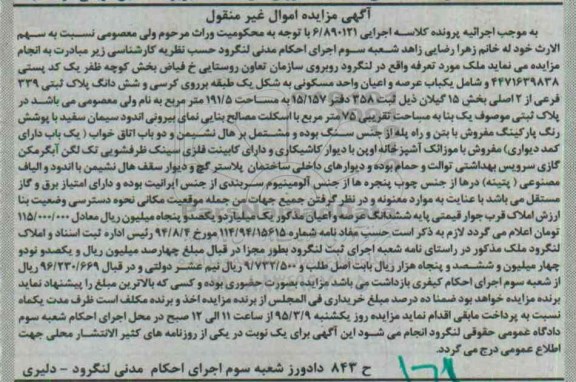 آگهی مزایده اموال غیر منقول
به موجب اجرائیه پرونده کلاسه اجرایی ۶/۸۹۰۱۲۱ با توجه به محکومیت وراث مرحوم ولی معصومی نسبت به سهم
الارث خود له خانم زهرا رضایی زاهد شعبه سوم اجرای احکام مدنی لنگرود حسب نظریه کارشناسی زیر مبادرت به انجام
مزایده می نماید ملک مورد تعرفه واقع در لنگرود روبروی سازمان تعاون روستایی خ فیاض بخش کوچه ظفر یک کد پستی
۴۴۷۱۶۳۹۸۳۸ و شامل یکباب عرصه و اعیان واحد مسکونی به شکل یک طبقه برروی کرسی و شش دانگ پلاک ثبتی ۳۳۹
فرعی از ۲ اصلی بخش ۱۵ گیلان ذیل ثبت ۳۵۸ دفتر ۱۵/۱۵۷ به مساحت ۱۹۱/۵ متر مربع به نام ولی معصومی می باشد در
پلاک ثبتی موصوف یک بنا به مساحت تقریبی ۷۵ متر مربع با اسکلت مصالح بنایی نمای بیرونی اندود سیمان سفید با پوشش
رنگ پارکینگ مفروش با بتن و راه پله از جنس سنگ بوده و مشتمل بر هال نشیمن و دو باب اتاق خواب ( یک باب دارای
کمد دیواری) مفروش با موزائک آشپزخانه اوپن با دیوار کاشیکاری و دارای کابینت فلزی سینک ظرفشویی تک لگن آبگرمکن
گازی سرویس بهداشتی توالت و حمام بوده و دیوارهای داخلی ساختمان پلاستر گچ و دیوار سقف هال نشیمن با اندود و الیاف
مصنوعی ( پتینه) درها از جنس چوب پنجره ها از جنس آلومینیوم سربندی از جنس ایرانیت بوده و دارای امتیاز برق و گاز
مستقل می باشد با عنایت به موارد معنونه و در نظر گرفتن جمیع جهات من جمله موقعیت مکانی نحوه دسترسی وضعیت بنا
ارزش املاک قرب جوار قیمتی پایه ششدانگ عرصه واعیان مذکور یک میلیارد یکصد و پنجاه میلیون ریال معادل ۱۱۵/۰۰۰/۰۰۰
تومان اعلام می گردد لازم به ذکر است حسب مفاد نامه شماره ۱۱۴/۹۴/۱۵۶۱۵ مورخ ۹۴/۸/۴ رئیس اداره ثبت اسناد و املاک
لنگرود ملک مذکور در راستای نامه شعبه اجرای ثبت لنگرود بطور مجزا در قبال مبلغ چهارصد میلیون ریال و یکصدو نودو
چهار میلیون و ششصد و پنجاه هزار ریال بابت اصل طلب و ۹/۷۳۲/۵۰۰ ریال نیم عشر دولتی و در قبال ۹۶/۲۳۰/۶۶۹ ریال
از شعبه سوم اجرای احکام کیفری بازداشت می باشد مزایده بصورت حضوری بوده و کسی که بالاترین مبلغ را پیشنهاد نماید
برنده مزایده خواهد بود ضمنا ده درصد مبلغ خریداری فی المجلس از برنده مزایده اخذ و برنده مکلف است ظرف مدت یکماه
نسبت به پرداخت مابقی اقدام نماید مزایده روز یکشنبه ۹۵/۳/۹ از ساعت ۱۱ الی ۱۲ صبح در محل اجرای احکام شعبه سوم
دادگاه عمومی حقوقی لنگرود انجام می شود این آگهی برای یک نوبت در یکی از روزنامه های کثیر الانتشار محلی جهت
اطلاع عمومی درج می گردد.
ح ۸۴۳ دادورز شعبه سوم اجرای احکام مدنی لنگرود - دلیری